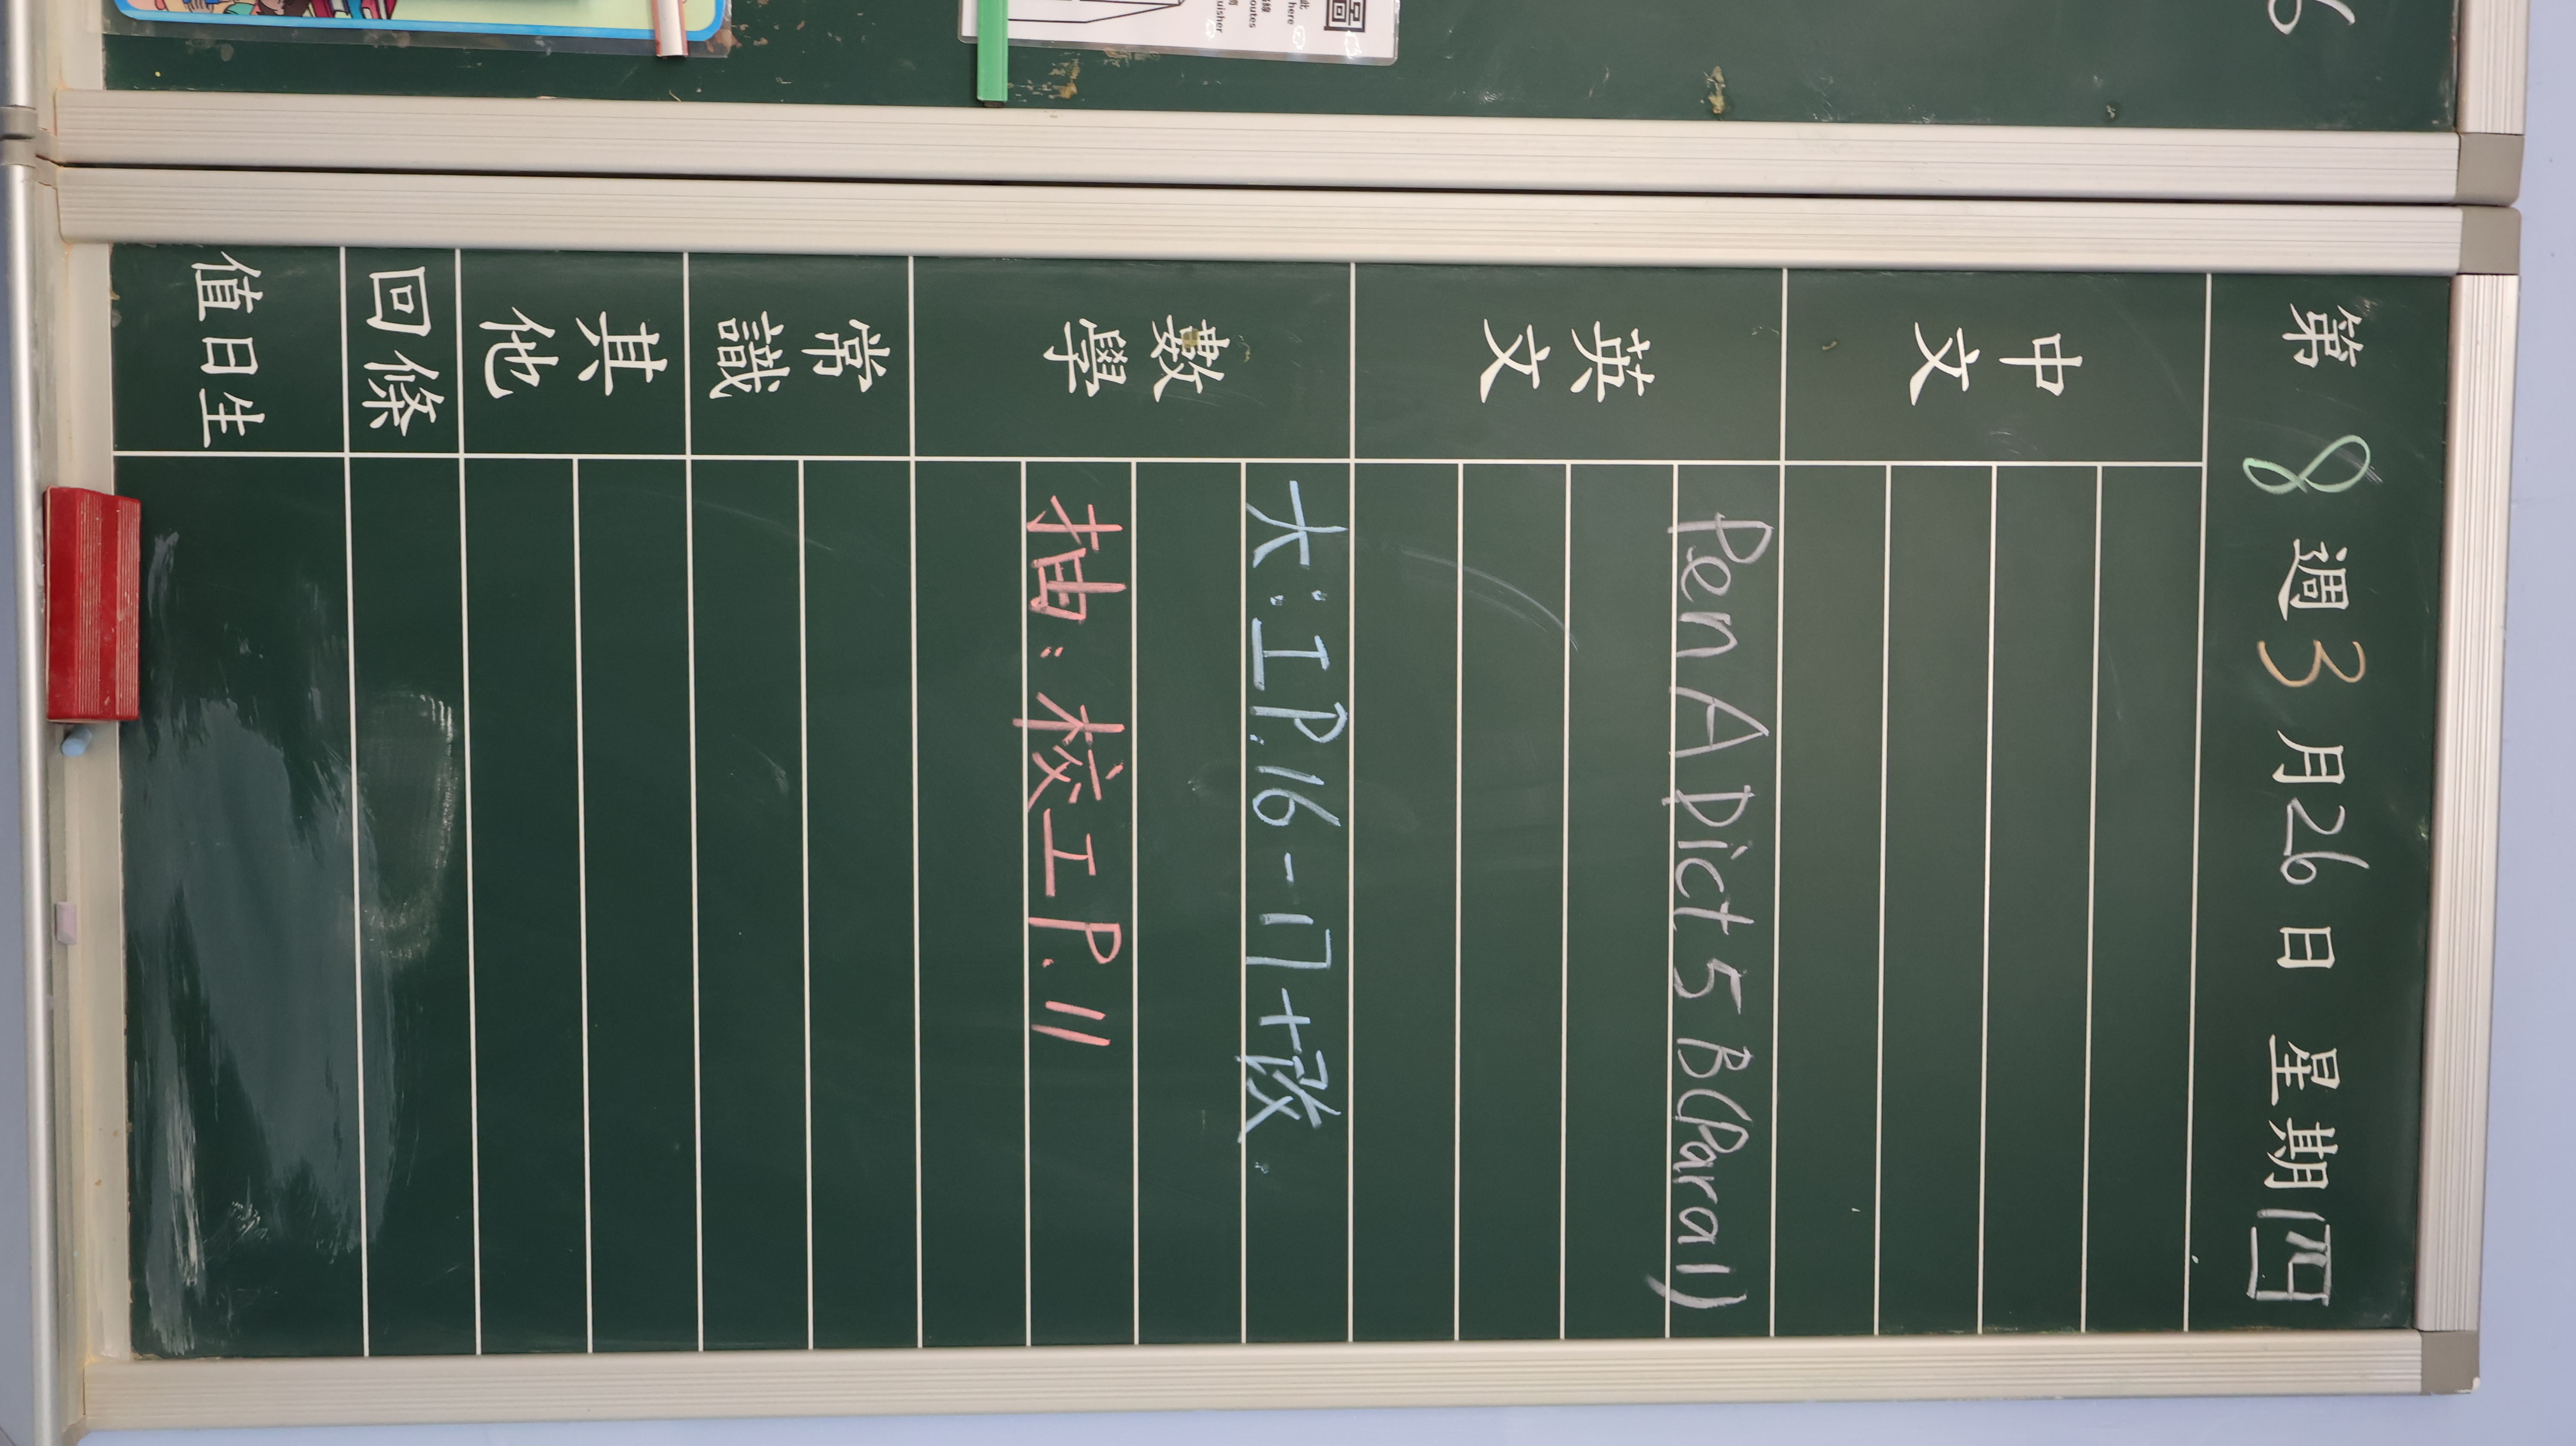 第 8 週 3 月 26 日 星期四
中文
英文
Pen A Dict 5 B(Paral)
數學
大:工P.16-17+改
抽:校工P.11
常識
其他
回條
值日生
圖
here
outes
uisher
6